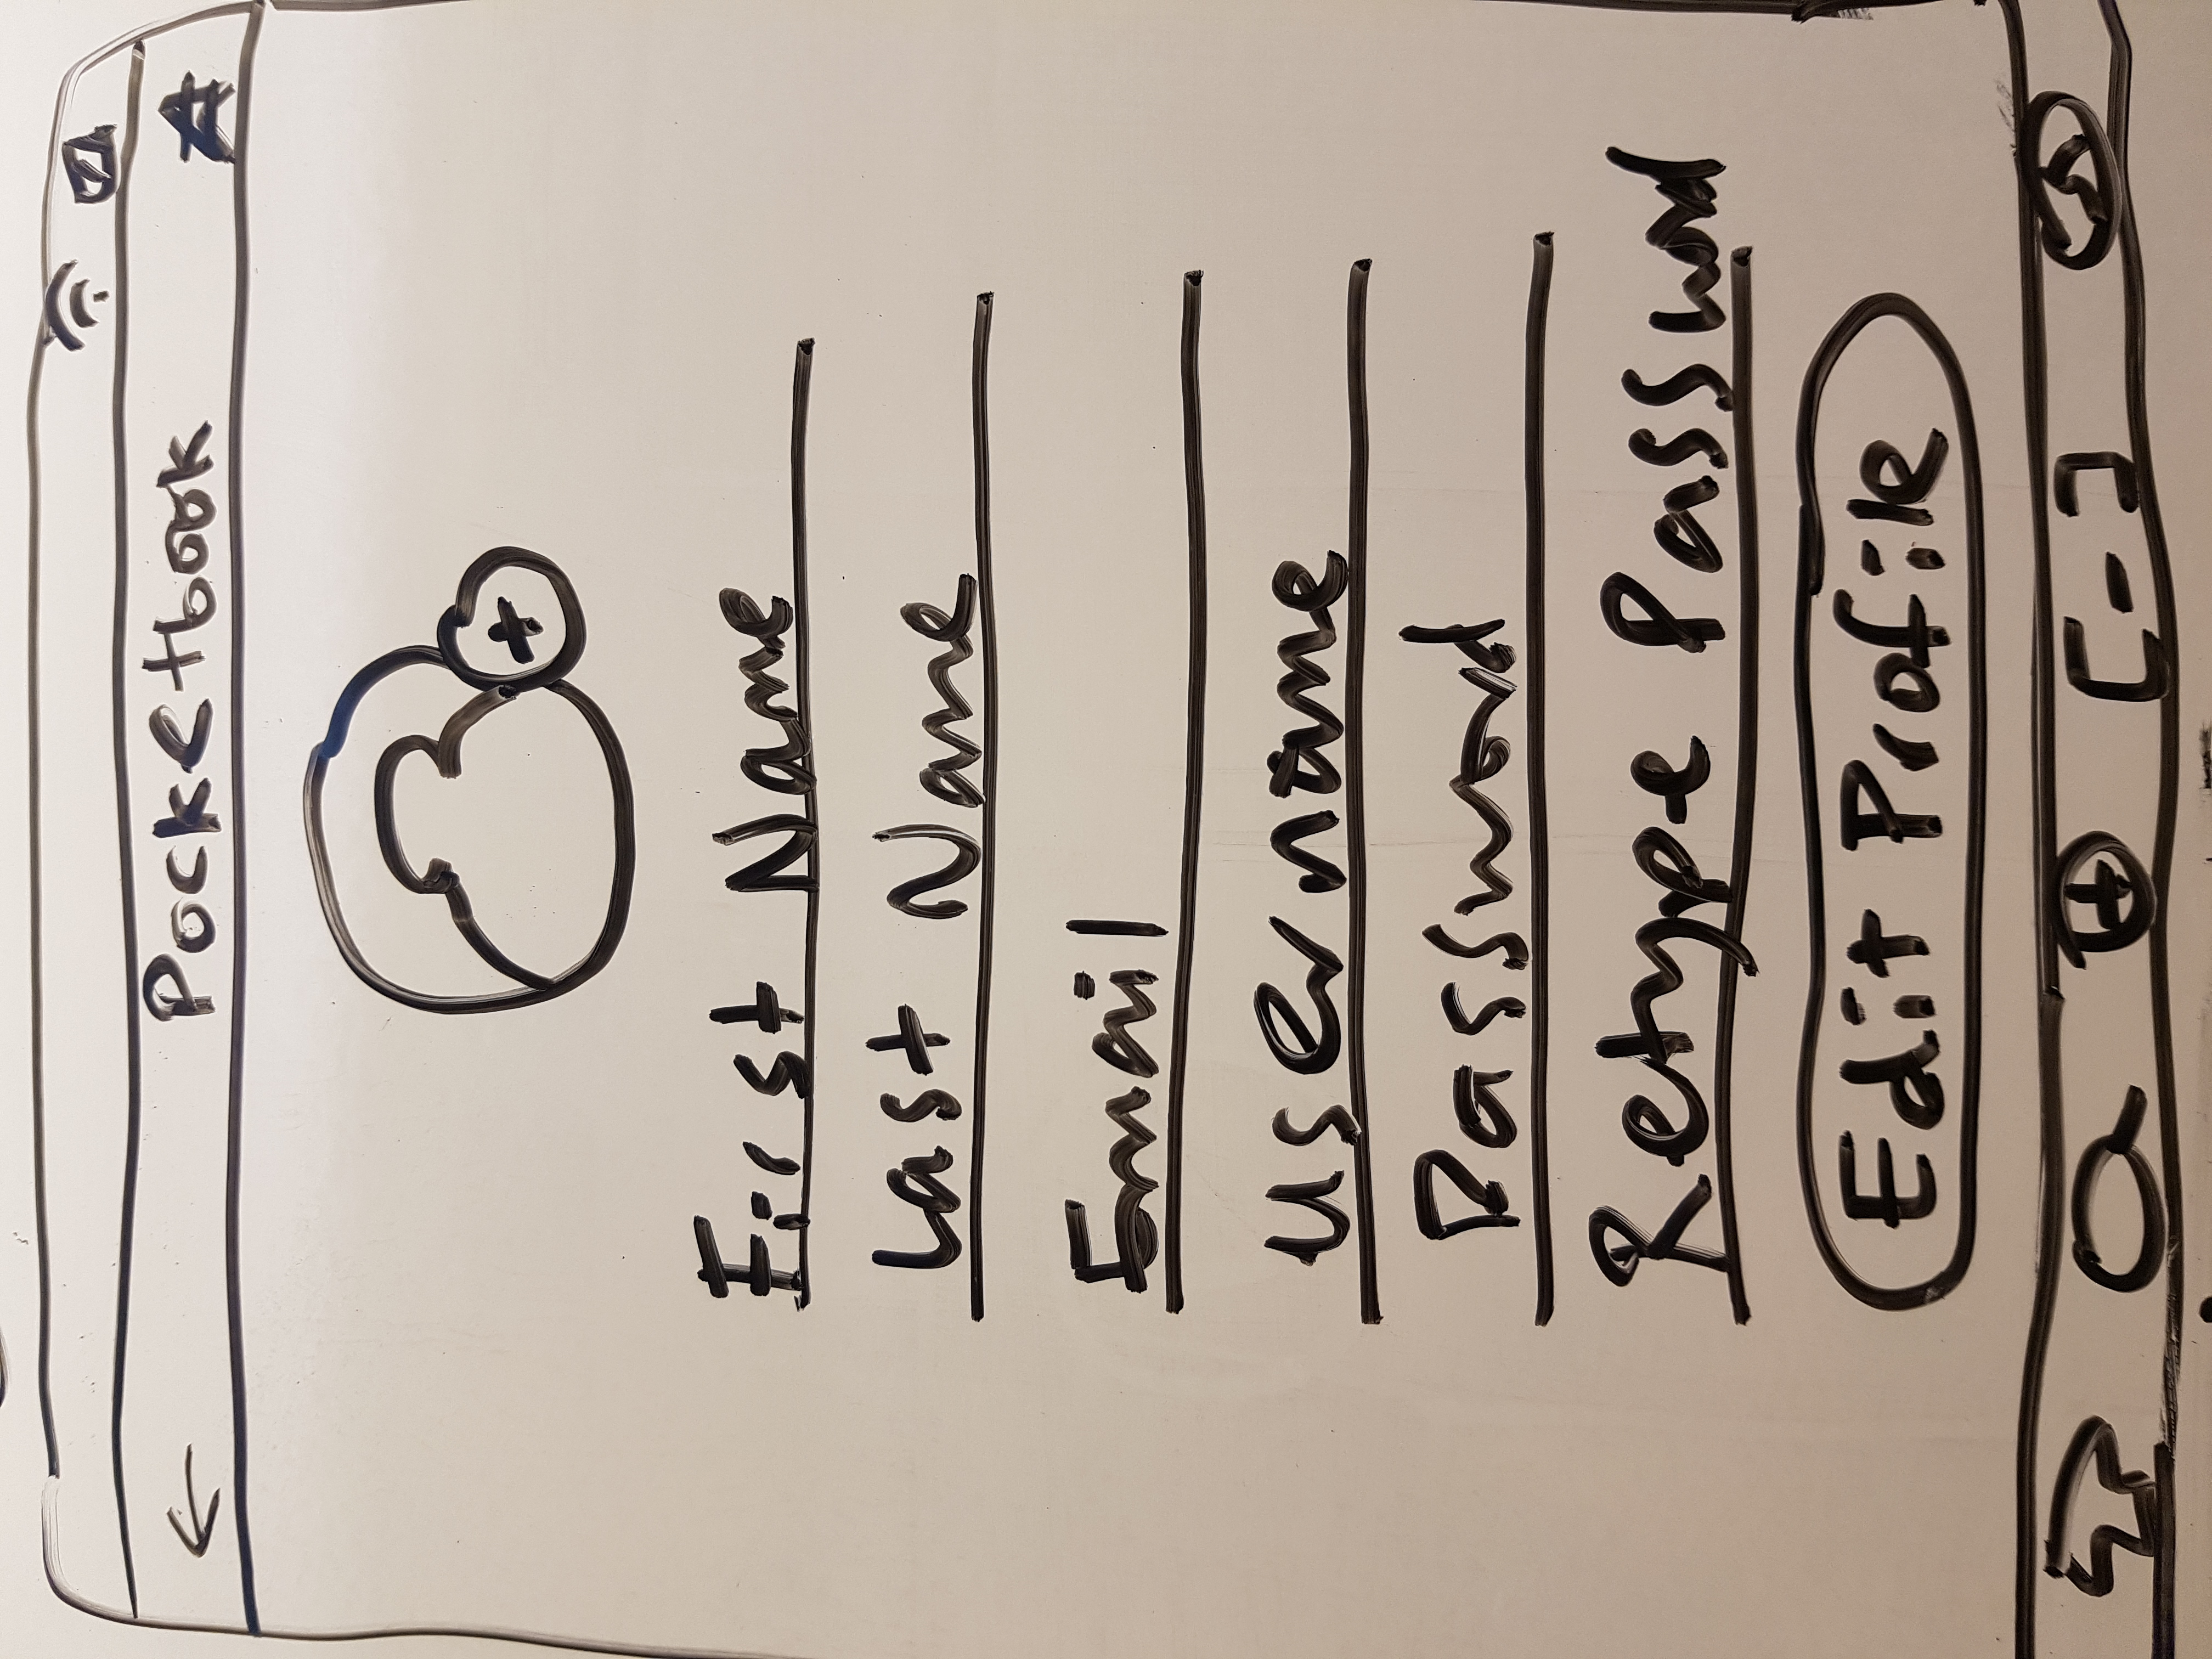 Pocketbook
First Name
Last Name
Email
username
Password
Retype Password
Edit Profile